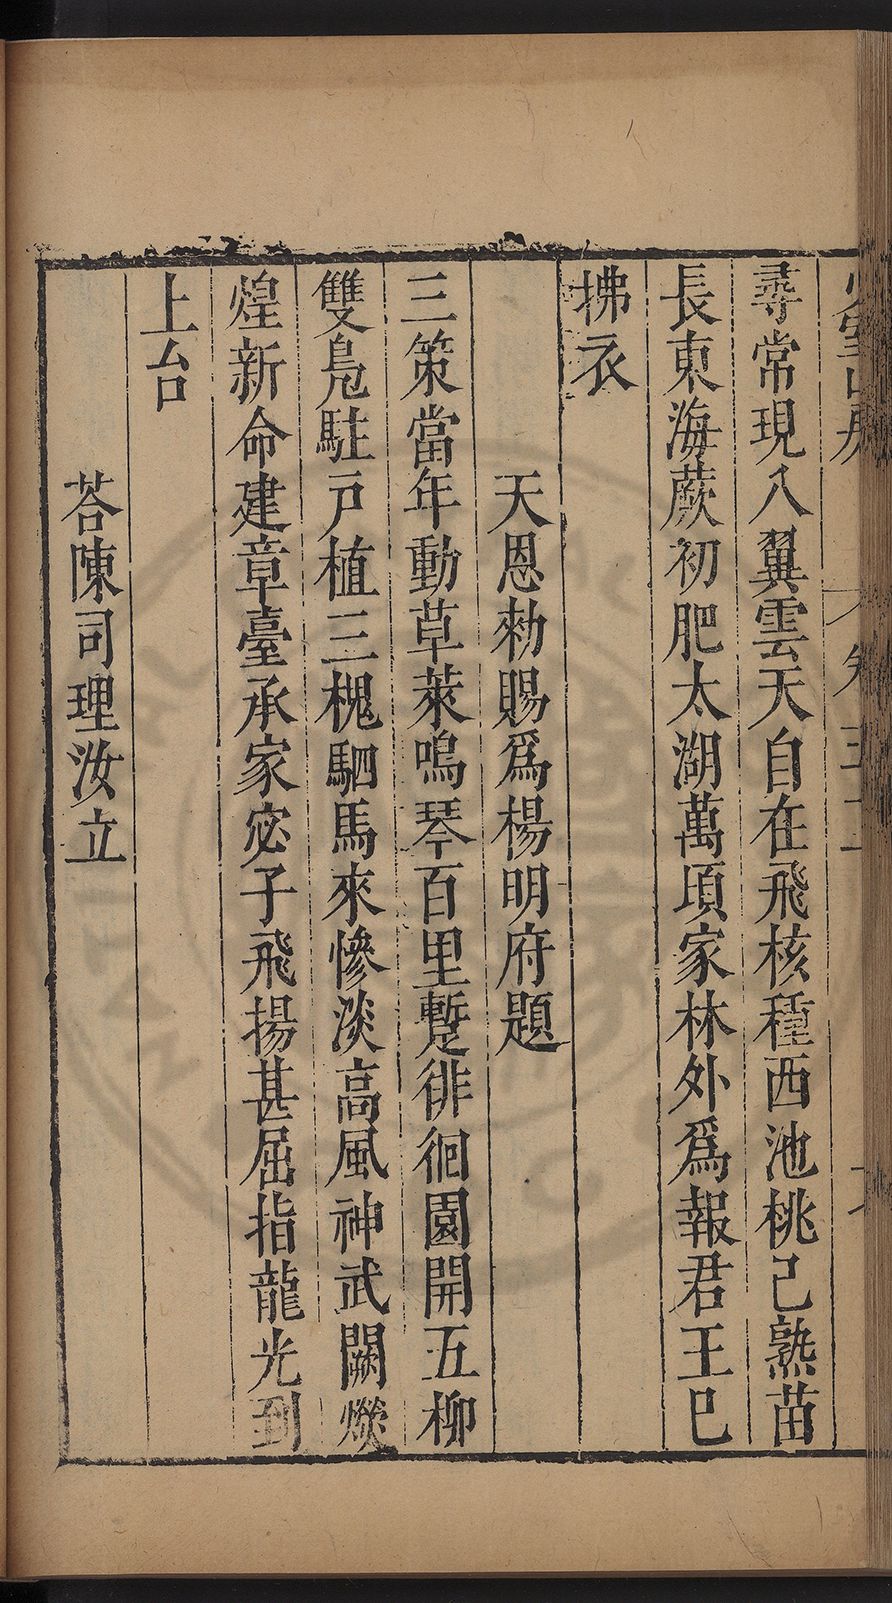 尋常現八翼雲天自在飛核種西池桃己熟苗
長東海蕨初肥太湖萬頃家林外爲報君王巳
拂衣
天恩勑賜爲楊明府題
三策當年動草萊鳴琴百里蹔徘徊園開五柳
雙鳧駐戸植三槐駟馬來慘淡高風神武闕熒
煌新命建章臺承家宓子飛揚甚屈指龍光到
上台
荅陳司理汝立